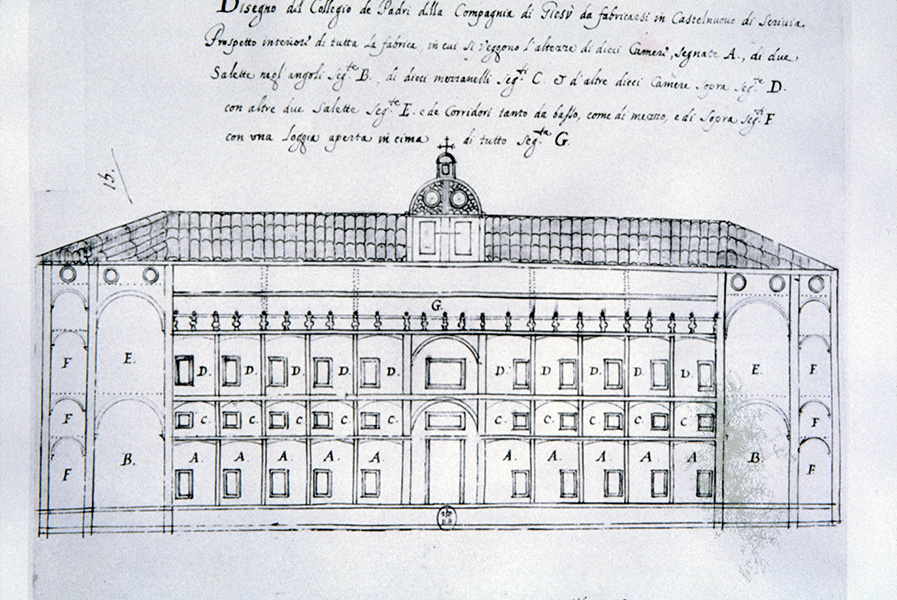 Disegno del Collegio de Padri della Compagnia di Giesù da fabricarsi in Castelnuovo di Scrivia.
Prospetto interiore di tutta la fabrica, in cui si veggono l'altezze di dieci Camere, segnate A., di due
Salette negl' angoli seg.te B. di dieci mezzanelli seg.ti C. & d'altre dieci Camere sopra seg.te D.
con altre due Salette seg.te E. e de Corridori tanto da basso, come di mezzo, e di sopra seg.ti F.
con una loggia aperta in cima di tutto seg.ta G.
15.
G.
D. D. D. D. D. D. D. D. D. D.
F E. E. F.
C. C. C. C. C. C. C. C. C. C.
F F
A. A. A. A. A. A. A. A. A. A.
F B. B. F.